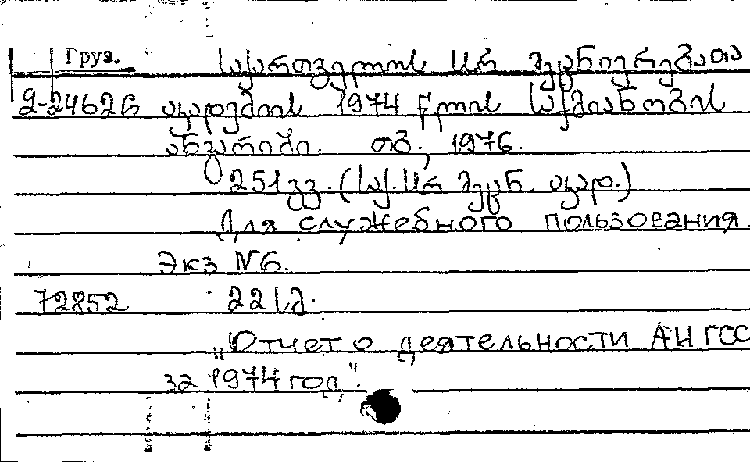 Груз.
საქართველოს სსრ მეცნიერებათა
2-2462б აკადემიის 1974 წლის საქმიანობის
ანგარიში. თბ., 1976.
251 გვ. (საქ. სსრ მეცნ. აკად.)
Для служебного пользования.
Экз №6.
72852 22 
„Отчет о деятельности АН ГСС
за 1974 год".